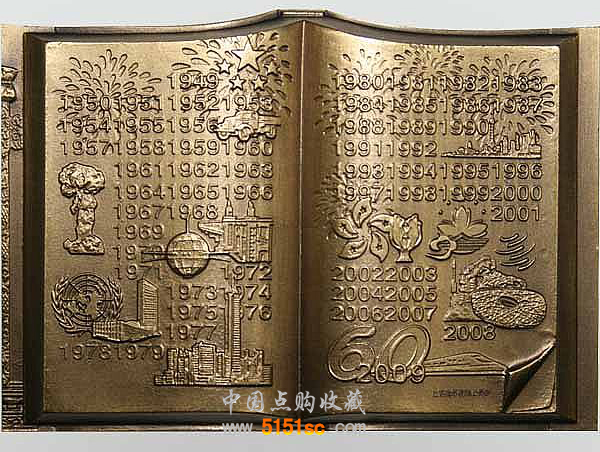 1949
1950195119521953
195419551956
1957195819591960
196119621963
196419651966
19671968
1969
1970
1971 1972
19731974
19751976
1977
19781979
1980198119821983
1984198519861987
198819891990
19911992
1993199419951996
1997199819992000
2001
20022003
20042005
20062007
2008
60
2009
中国点购收藏
www.5151sc.com